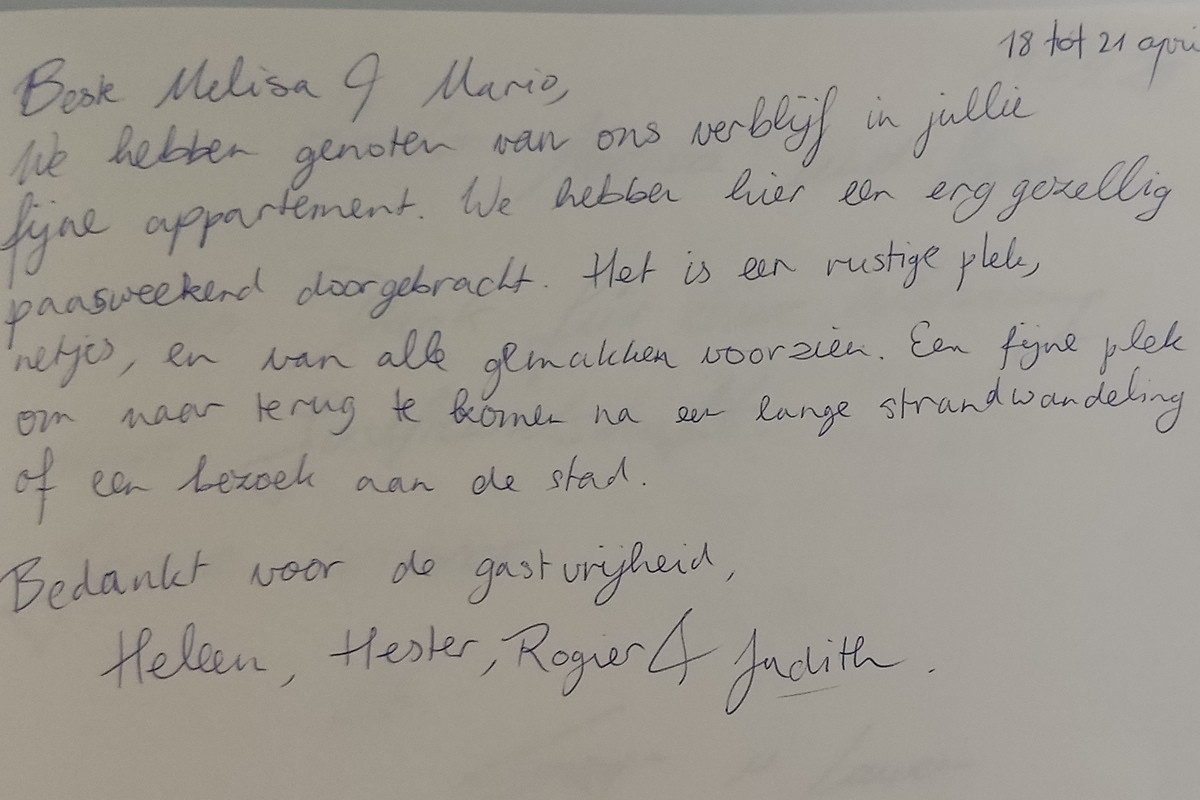 18 tot 21 apri
Beste Melisa & Mario,
We hebben genoten van ons verblijf in jullie
fijne appartement. We hebben hier een erg gezellig
paasweekend doorgebracht. Het is een rustige plek,
netjes, en van alle gemakken voorzien. Een fijne plek
om naar terug te komen na een lange strandwandeling
of een bezoek aan de stad.
Bedankt voor de gastvrijheid,
Heleen, Hester, Rogier & Judith.